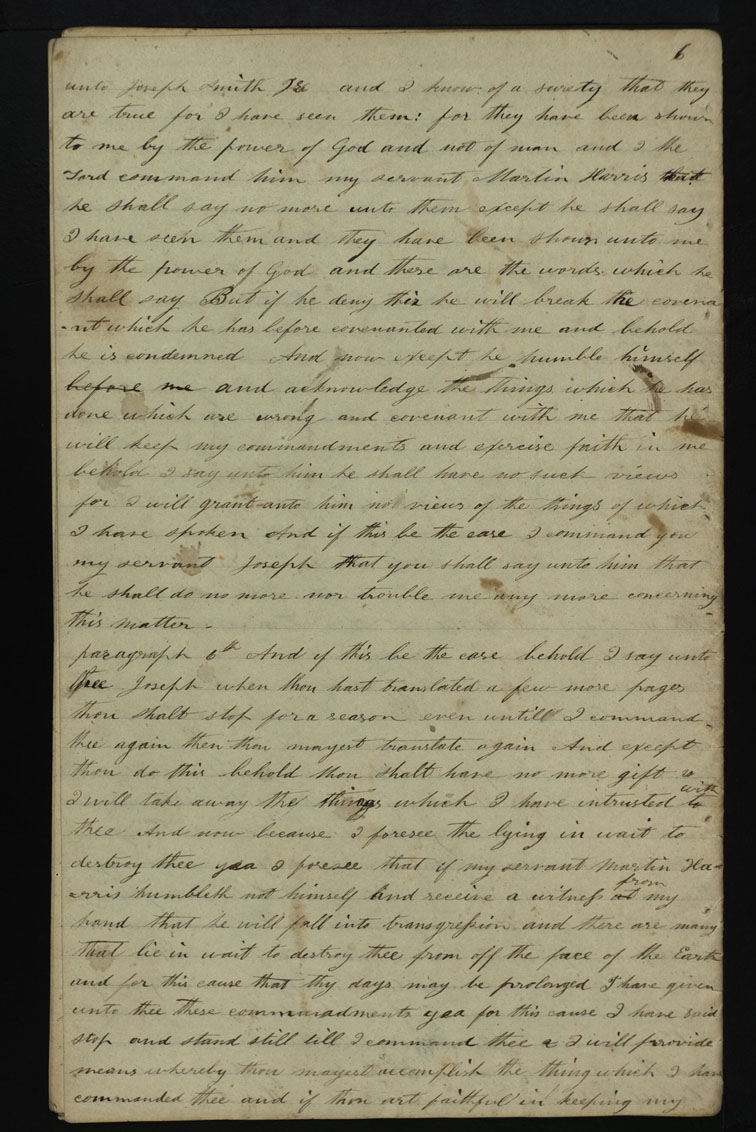 6
unto Joseph Smith Jr and I know of a surety that they
are true for I have seen them: for they have been shown
to me by the power of God and not of man and I the
Lord command him my servant Martin Harris that
he shall say no more unto them except he shall say
I have seen them and they have been shown unto me
by the power of God and these are the words which he
shall say But if he deny this he will break the covena
-nt which he has before covenanted with me and behold
he is condemned And now except he humble himself
before me and acknowledge the things which he has
done which are wrong and covenant with me that he
will keep my commandments and exercise faith in me
behold I say unto him he shall have no such views
for I will grant unto him no views of the things of which
I have spoken And if this be the case I command you
my servant Joseph that you shall say unto him that
he shall do no more nor trouble me any more concerning
this matter -
paragraph 6th And if this be the case behold I say unto
thee Joseph when thou hast translated a few more pages
thou shalt stop for a season even untill I command
thee again then thou mayest translate again And except
thou do this behold thou shalt have no more gift &
I will take away the things which I have intrusted to with
thee And now because I foresee the lying in wait to
destroy thee yea I foresee that if my servant Martin Ha-
-rris humbleth not himself and receive a witness at from my
hand that he will fall into transgression and there are many
that lie in wait to destroy thee from off the face of the Earth
and for this cause that thy days may be prolonged I have given
unto thee these commandments yea for this cause I have said
stop and stand still till I command thee & I will provide
means whereby thou mayest accomplish the thing which I have
commanded thee and if thou art faithful in keeping my